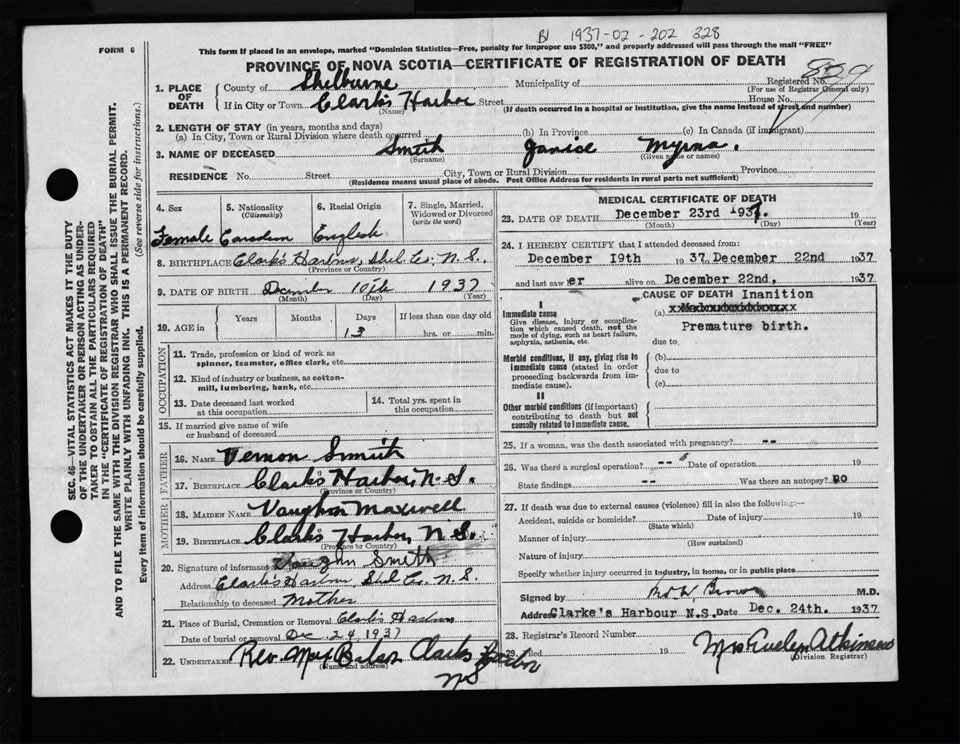 BI 1937-02-202 328
FORM 6
This form if placed in an envelope, marked "Dominion Statistics—Free, penalty for improper use $300," and properly addressed will pass through the mail "FREE"
PROVINCE OF NOVA SCOTIA—CERTIFICATE OF REGISTRATION OF DEATH
SEC. 46—VITAL STATISTICS ACT MAKES IT THE DUTY
OF THE UNDERTAKER OR PERSON ACTING AS UNDER-
TAKER TO OBTAIN ALL THE PARTICULARS REQUIRED
IN THE "CERTIFICATE OF REGISTRATION OF DEATH"
AND TO FILE THE SAME WITH THE DIVISION REGISTRAR WHO SHALL ISSUE THE BURIAL PERMIT.
WRITE PLAINLY WITH UNFADING INK. THIS IS A PERMANENT RECORD.
Every item of information should be carefully supplied. (See reverse side for instructions.)
1. PLACE OF DEATH
County of Shelburne Municipality of Registered No.
(For use of Registrar General only)
If in City or Town Clark's Harbor Street House No.
(Name) (If death occurred in a hospital or institution, give the name instead of street and number)
2. LENGTH OF STAY (in years, months and days)
(a) In City, Town or Rural Division where death occurred (b) In Province (c) In Canada (if immigrant)
3. NAME OF DECEASED Smith Janice Myrna.
(Surname) (Given name or names)
RESIDENCE No. Street City, Town or Rural Division Province
(Residence means usual place of abode. Post Office Address for residents in rural parts not sufficient)
4. Sex 5. Nationality (Citizenship) 6. Racial Origin 7. Single, Married, Widowed or Divorced (write the word)
Female English
8. BIRTHPLACE Clark's Harbour, Shel. Co. N.S.
(Province or Country)
9. DATE OF BIRTH December 10th 1937
(Month) (Day) (Year)
10. AGE in Years Months Days If less than one day old
13 hrs. or min.
OCCUPATION
11. Trade, profession or kind of work as
spinner, teamster, office clerk, etc.
12. Kind of industry or business, as cotton-
mill, lumbering, bank, etc.
13. Date deceased last worked
at this occupation
14. Total yrs. spent in
this occupation
15. If married give name of wife
or husband of deceased
FATHER
16. NAME Vernon Smith
17. BIRTHPLACE Clark's Harbor, N.S.
(Province or Country)
MOTHER
18. MAIDEN NAME Vaughn Maxwell
19. BIRTHPLACE Clark's Harbor, N.S.
(Province or Country)
20. Signature of informant Vaughn Smith
Address Clark's Harbour, Shel Co. N.S.
Relationship to deceased Mother
21. Place of Burial, Cremation or Removal Clark's Harbour
Date of burial or removal Dec 24, 1937
22. UNDERTAKER Rev. Clarks Harbor
(Name and address)
NS
MEDICAL CERTIFICATE OF DEATH
23. DATE OF DEATH December 23rd 1937. 19
(Month) (Day) (Year)
24. I HEREBY CERTIFY that I attended deceased from:
December 19th 1937 to December 22nd 1937
and last saw er alive on December 22nd, 1937
CAUSE OF DEATH Inanition
I
Immediate cause
Give disease, injury or complica-
tion which caused death, not the
mode of dying, such as heart failure,
asphyxia, asthenia, etc.
(a)
Premature birth.
due to
Morbid conditions, if any, giving rise to
immediate cause (stated in order
proceeding backwards from im-
mediate cause).
(b)
due to
(c)
II
Other morbid conditions (if important)
contributing to death but not
causally related to immediate cause.
25. If a woman, was the death associated with pregnancy? --
26. Was there a surgical operation? -- Date of operation 19
State findings -- Was there an autopsy? no
27. If death was due to external causes (violence) fill in also the following:—
Accident, suicide or homicide? Date of injury 19
(State which)
Manner of injury
(How sustained)
Nature of injury
Specify whether injury occurred in industry, in home, or in public place
Signed by Brown M.D.
Address Clarke's Harbour N.S. Date Dec. 24th. 1937
28. Registrar's Record Number
29. Filed 19 Mrs Evelyn Atkinson
(Division Registrar)